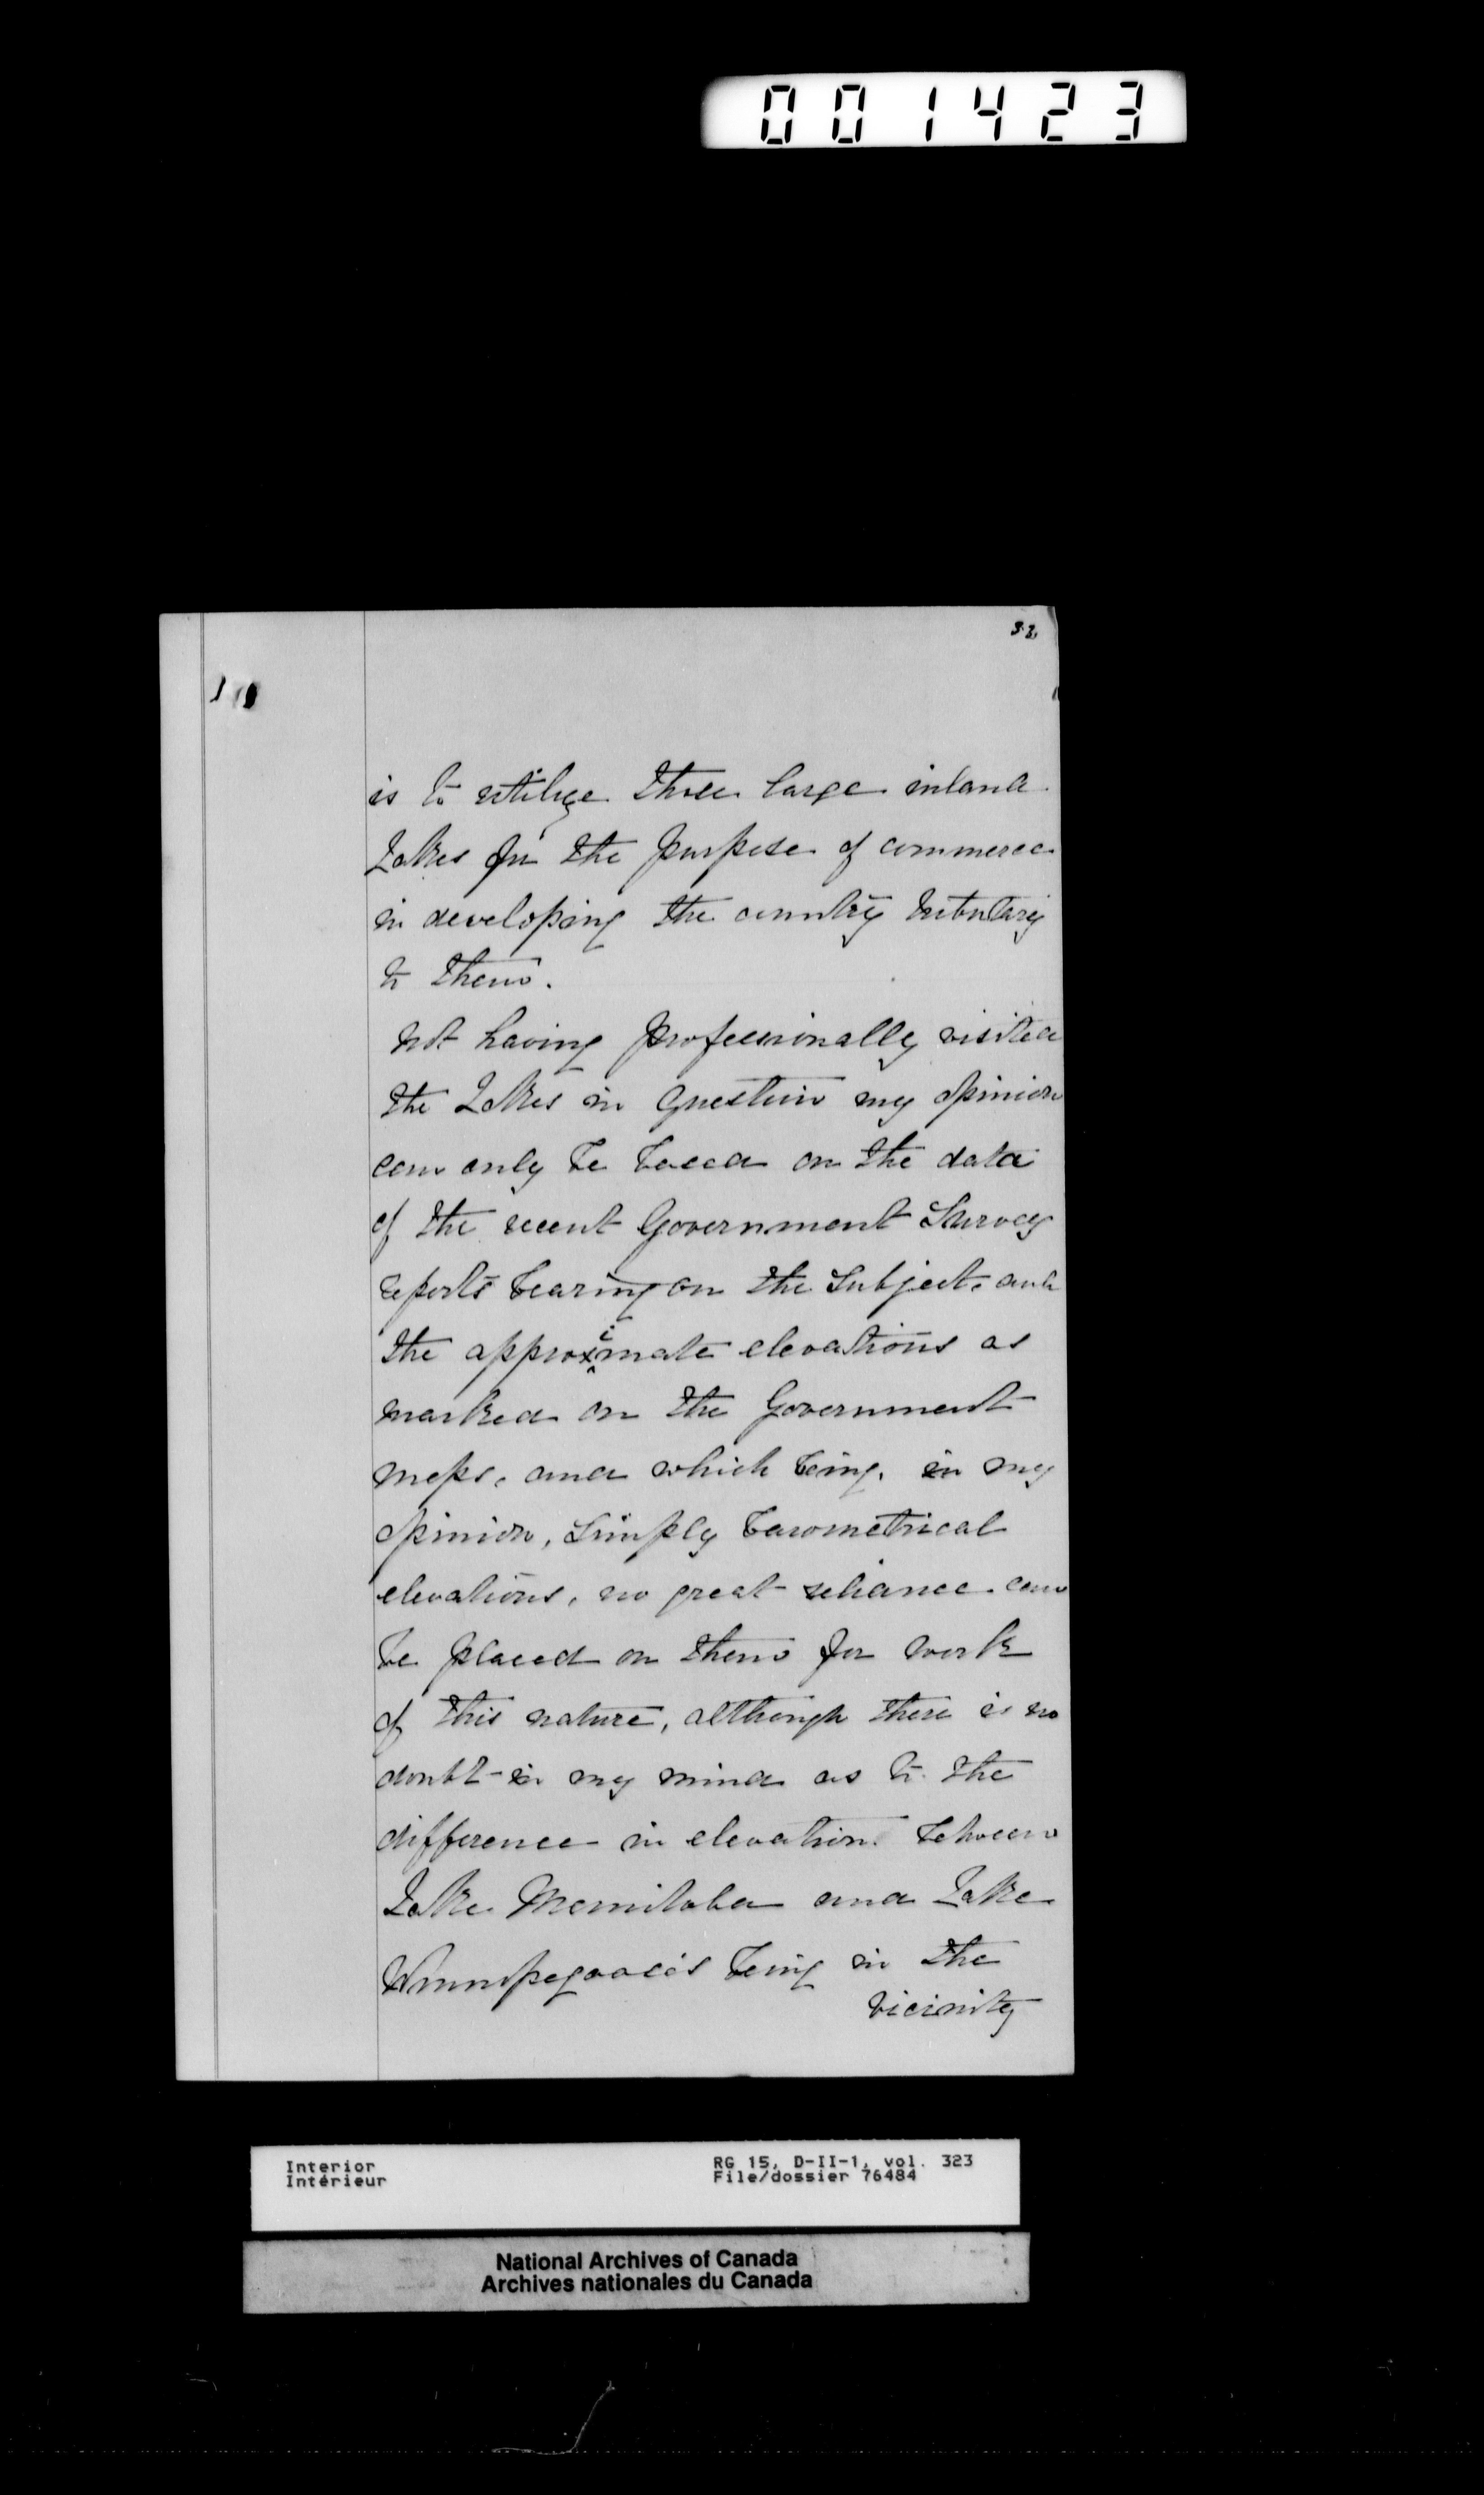 001423
32
is to utilize these large inland
Lakes for the purpose of commerce
in developing the country tributary
to them.
Not having professionally visited
the Lakes in question my opinion
can only be based on the data
of the recent Government Survey
reports bearing on the subject, and
the approximate elevations as
marked on the Government
maps, and which being, in my
opinion, simply barometrical
elevations, no great reliance can
be placed on them for work
of this nature, although there is no
doubt in my mind as to the
difference in elevation between
Lake Manitoba and Lake
Winnipegoosis being in the
vicinity
Interior
Intérieur
RG 15, D-II-1, vol. 323
File/dossier 76484
National Archives of Canada
Archives nationales du Canada